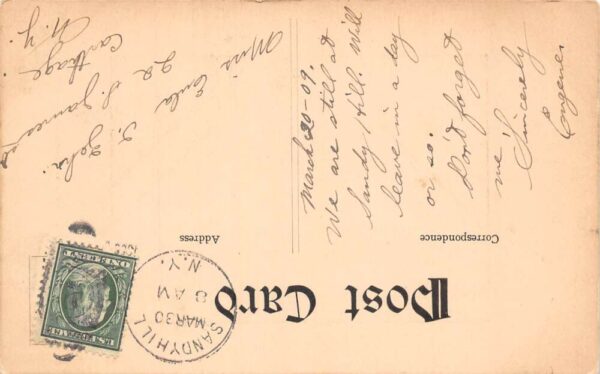 Post Card
Correspondence
Address
SANDYHILL
MAR 30
8 AM
N.Y.
U.S. POSTAGE
ONE CENT
March 30-09.
We are still at
Sandy Hill. Will
leave in a day
or so.
Don't forget
me.
Sincerely
Eugene.
Miss Eula John.
22 S. James st
Carthage
N.Y.